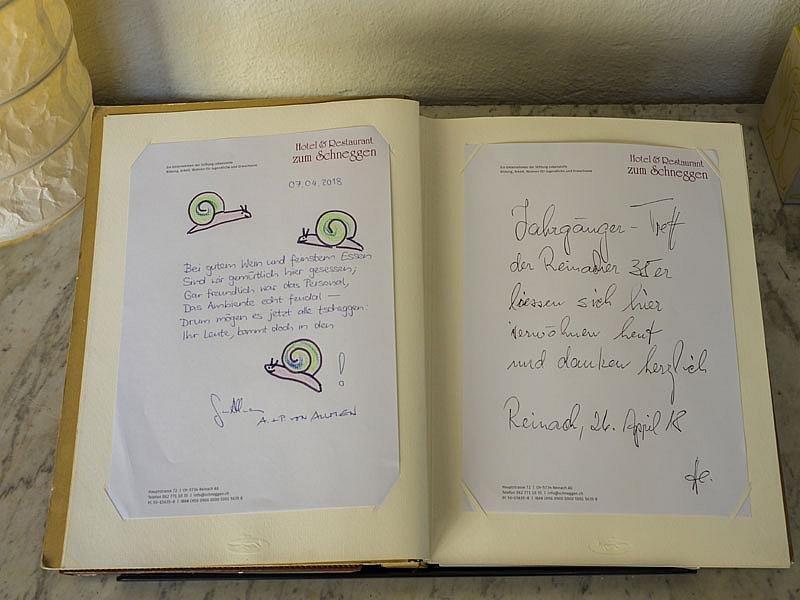 Ein Unternehmen der Stiftung Lebenshilfe
Bildung, Arbeit, Wohnen für Jugendliche und Erwachsene
Hotel & Restaurant
zum Schneggen
07.04.2018
Bei gutem Wein und feinstem Essen
Sind wir gemütlich hier gesessen;
Gar freundlich war das Personal,
Das Ambiente echt feudal —
Drum mögen es jetzt alle tscheggen:
Ihr Leute, kommt doch in den
!
A. + P. VON ALLMEN
Hauptstrasse 72 | CH-5734 Reinach AG
Telefon 062 771 10 35 | info@schneggen.ch
Ein Unternehmen der Stiftung Lebenshilfe
Bildung, Arbeit, Wohnen für Jugendliche und Erwachsene
Hotel & Restaurant
zum Schneggen
Jahrgänger-Treff
der Reinacher 35er
liessen sich hier
verwöhnen heut
und danken herzlich
Reinach, 26. April 18
Hauptstrasse 72 | CH-5734 Reinach AG
Telefon 062 771 10 35 | info@schneggen.ch